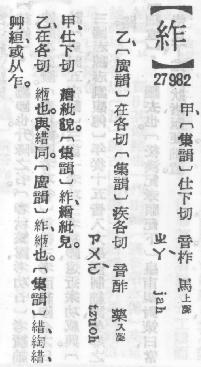 【絰】
27982
甲、〔集韻〕仕下切 音柞 馬上聲
ㄓㄚˋ jah
乙、〔廣韻〕在各切〔集韻〕疾各切 音酢 藥入聲
ㄗㄨㄛˋ tzuoh
甲仕下切 繒紕貌。〔集韻〕絰、繒紕皃。
乙在各切 緪也、與䋏同。〔廣韻〕絰、緪也。〔集韻〕䋏、䋏縍、
艸緪、或从乍。